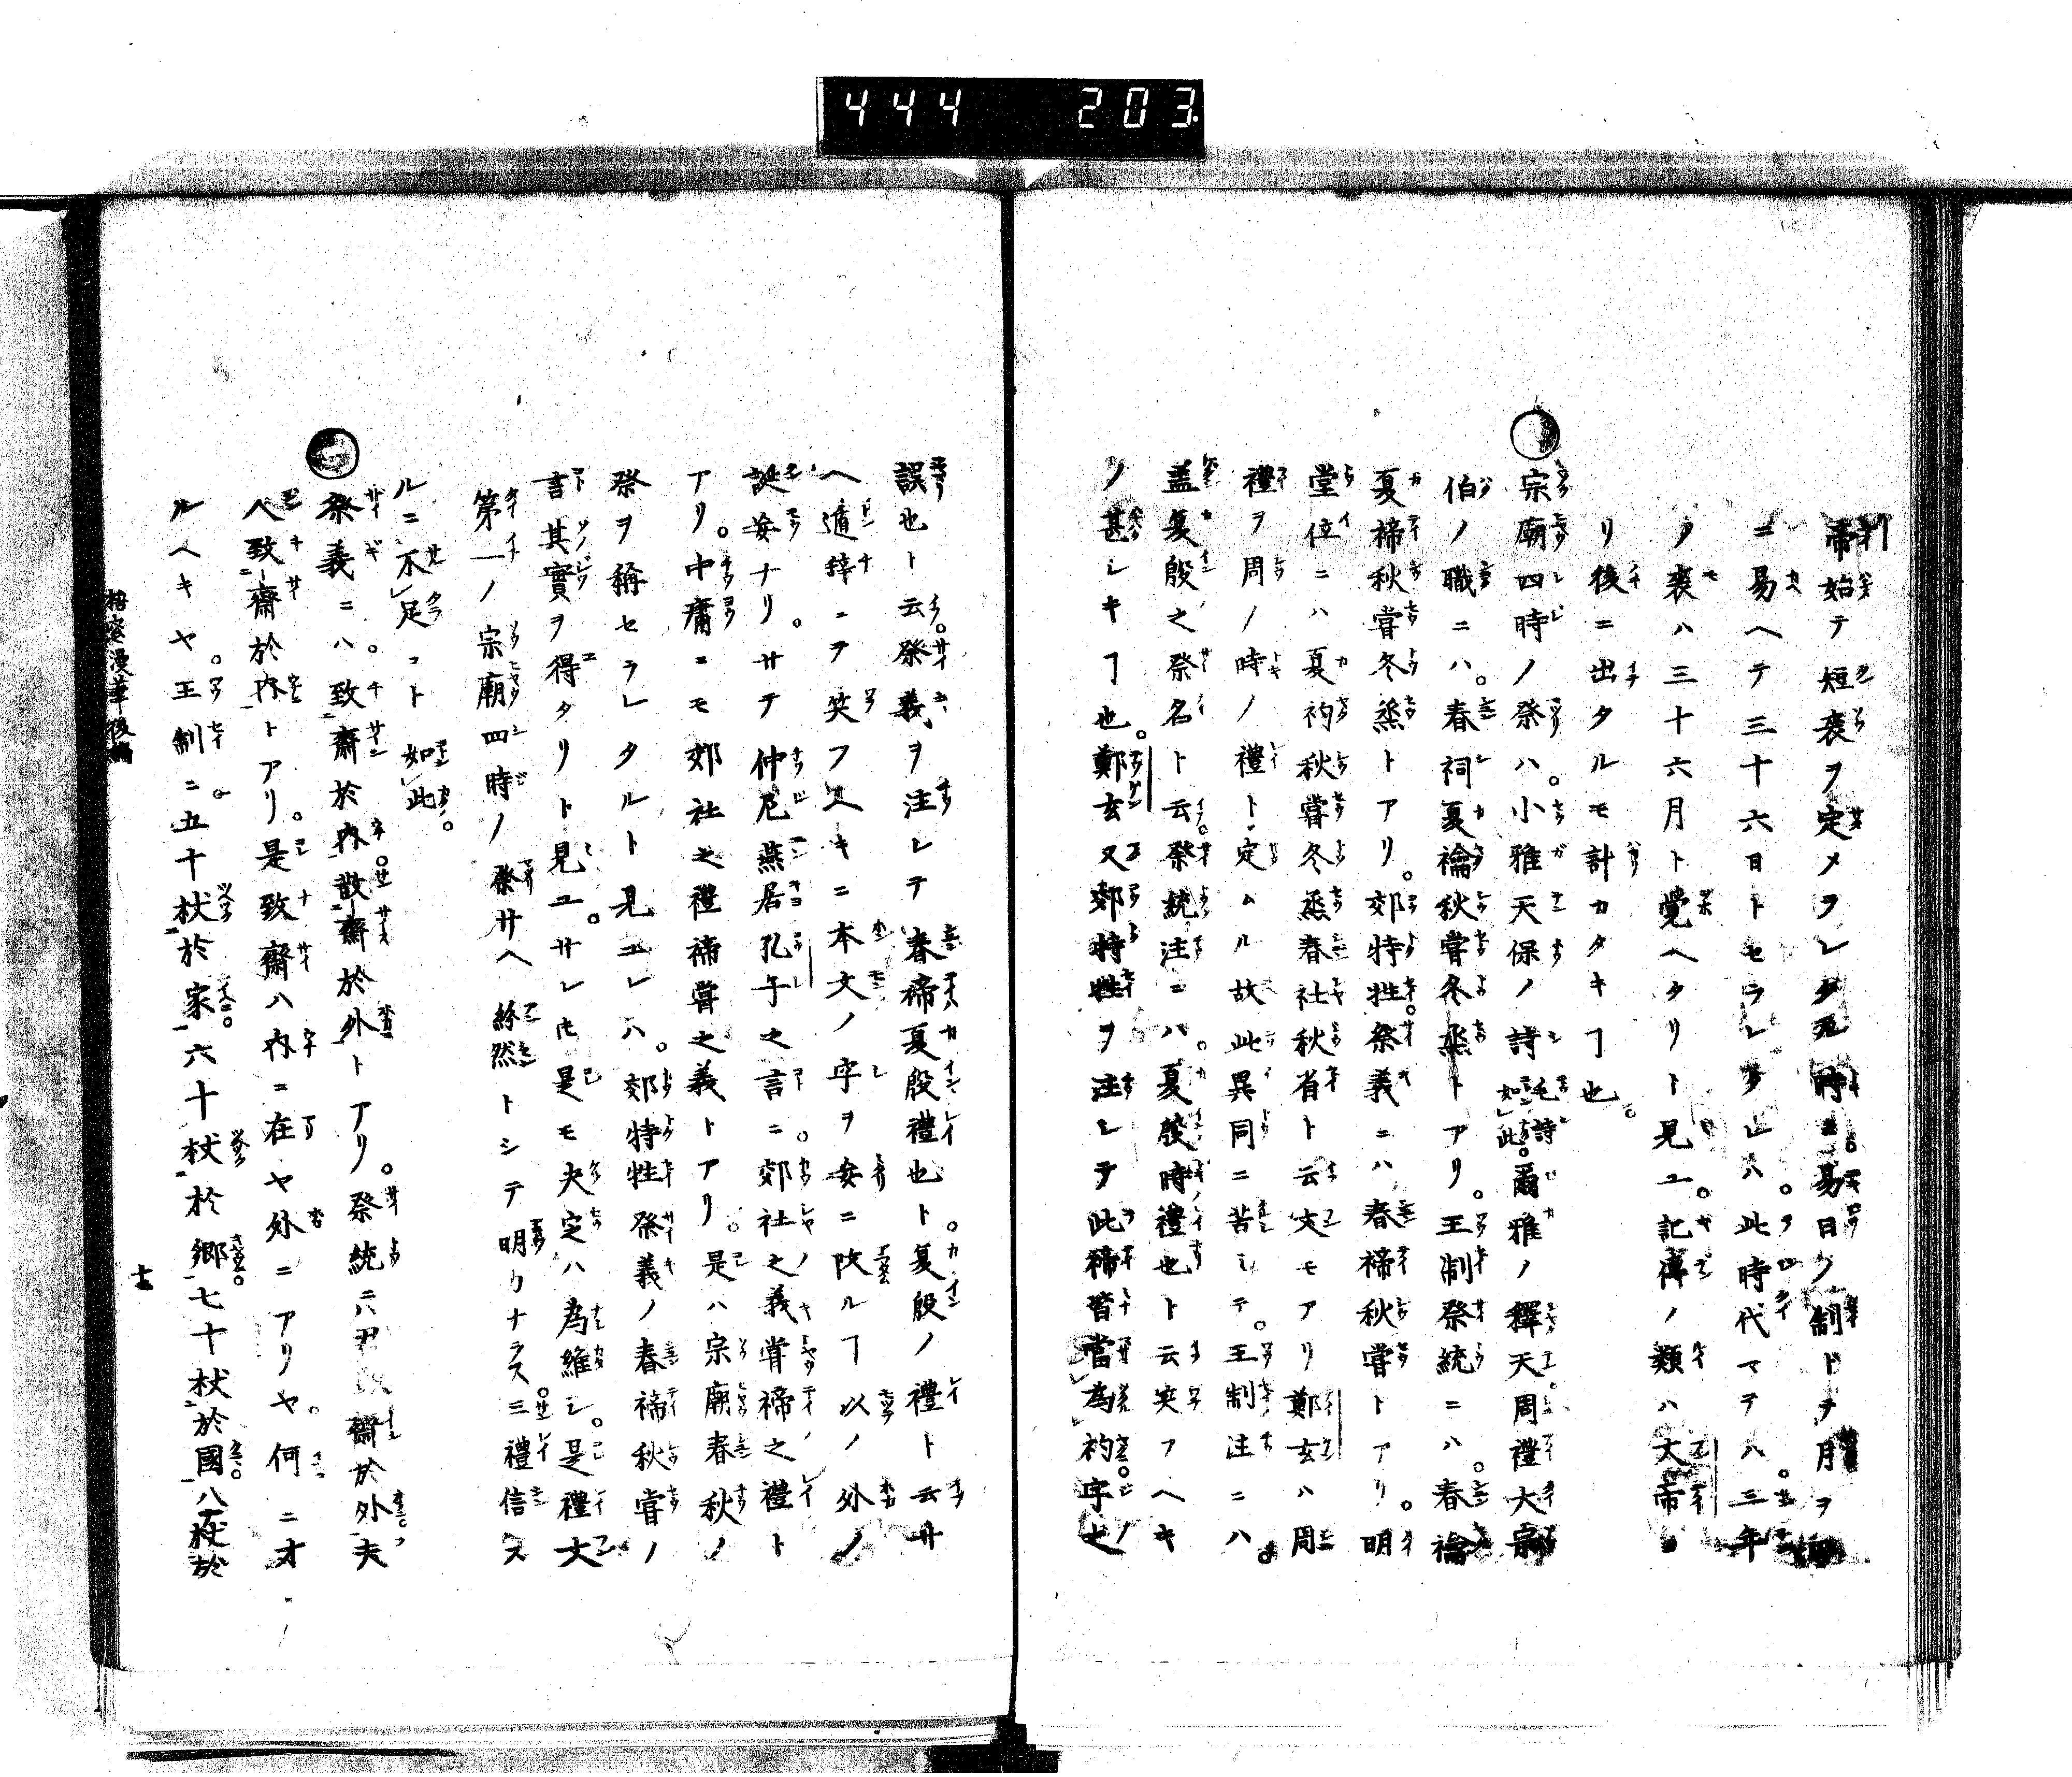 444 203
帝始テ短喪ヲ定メヲレタル時ニ。易日ノ制トヲ月ヲ
ニ易ヘテ三十六日トセラレタレハ。此時代マテハ。三年
ノ喪ハ三十六月ト覺ヘタリト見ユ。記傳ノ類ハ大帝ヨ
リ後ニ出タルモ計カタキヿ也。
宗廟四時ノ祭ハ。小雅天保ノ詩毛詩如此。爾雅ノ釋天。周禮大宗
伯ノ職ニハ。春祠夏禴秋甞冬烝トアリ。王制祭統ニハ。春禴
夏禘秋甞冬烝トアリ。郊特牲。祭義ニハ春禘秋甞トアリ。明
堂位ニハ夏礿秋甞冬烝春社秋省ト云文モアリ鄭玄ハ周
禮ヲ周ノ時ノ禮ト定ムル故此異同ニ苦ミテ。王制注ニハ。
盖夏殷之祭名ト云。祭統注ニハ。夏殷時禮也ト云笑フヘキ
ノ甚シキヿ也。鄭玄又郊特牲ヲ注シテ此禘皆當為礿。字之
誤也ト云。祭義ヲ注シテ春禘夏殷禮也ト。夏殷ノ禮ト云サ
ヘ遁辞ニヲ笑フヘキニ本文ノ字ヲ妄ニ改ルヿ以ノ外ノ
誕妄ナリ。サテ仲尼燕居孔子之言ニ。郊社之義甞禘之禮ト
アリ。中庸ニモ郊社之禮禘甞之義トアリ。是ハ宗廟春秋ノ
祭ヲ稱セラレタルト見ユレハ。郊特牲祭義ノ春禘秋甞ノ
言其實ヲ得タリト見ユ。サレ𪜈是モ夬定ハ為難シ。是禮大
第一ノ宗廟四時ノ祭サヘ紛然トシテ明カナラス。三禮信ス
ルニ不足コト如此。
祭義ニハ。致齋於內。散齋於外トアリ。祭統ニハ君致齋於外。夫
人致齋於內トアリ。是致齋ハ內ニ在ヤ外ニアリヤ。何ニオ
ルヘキヤ。王制ニ。五十杖於家。六十杖於郷。七十杖於國。八十杖於
十三